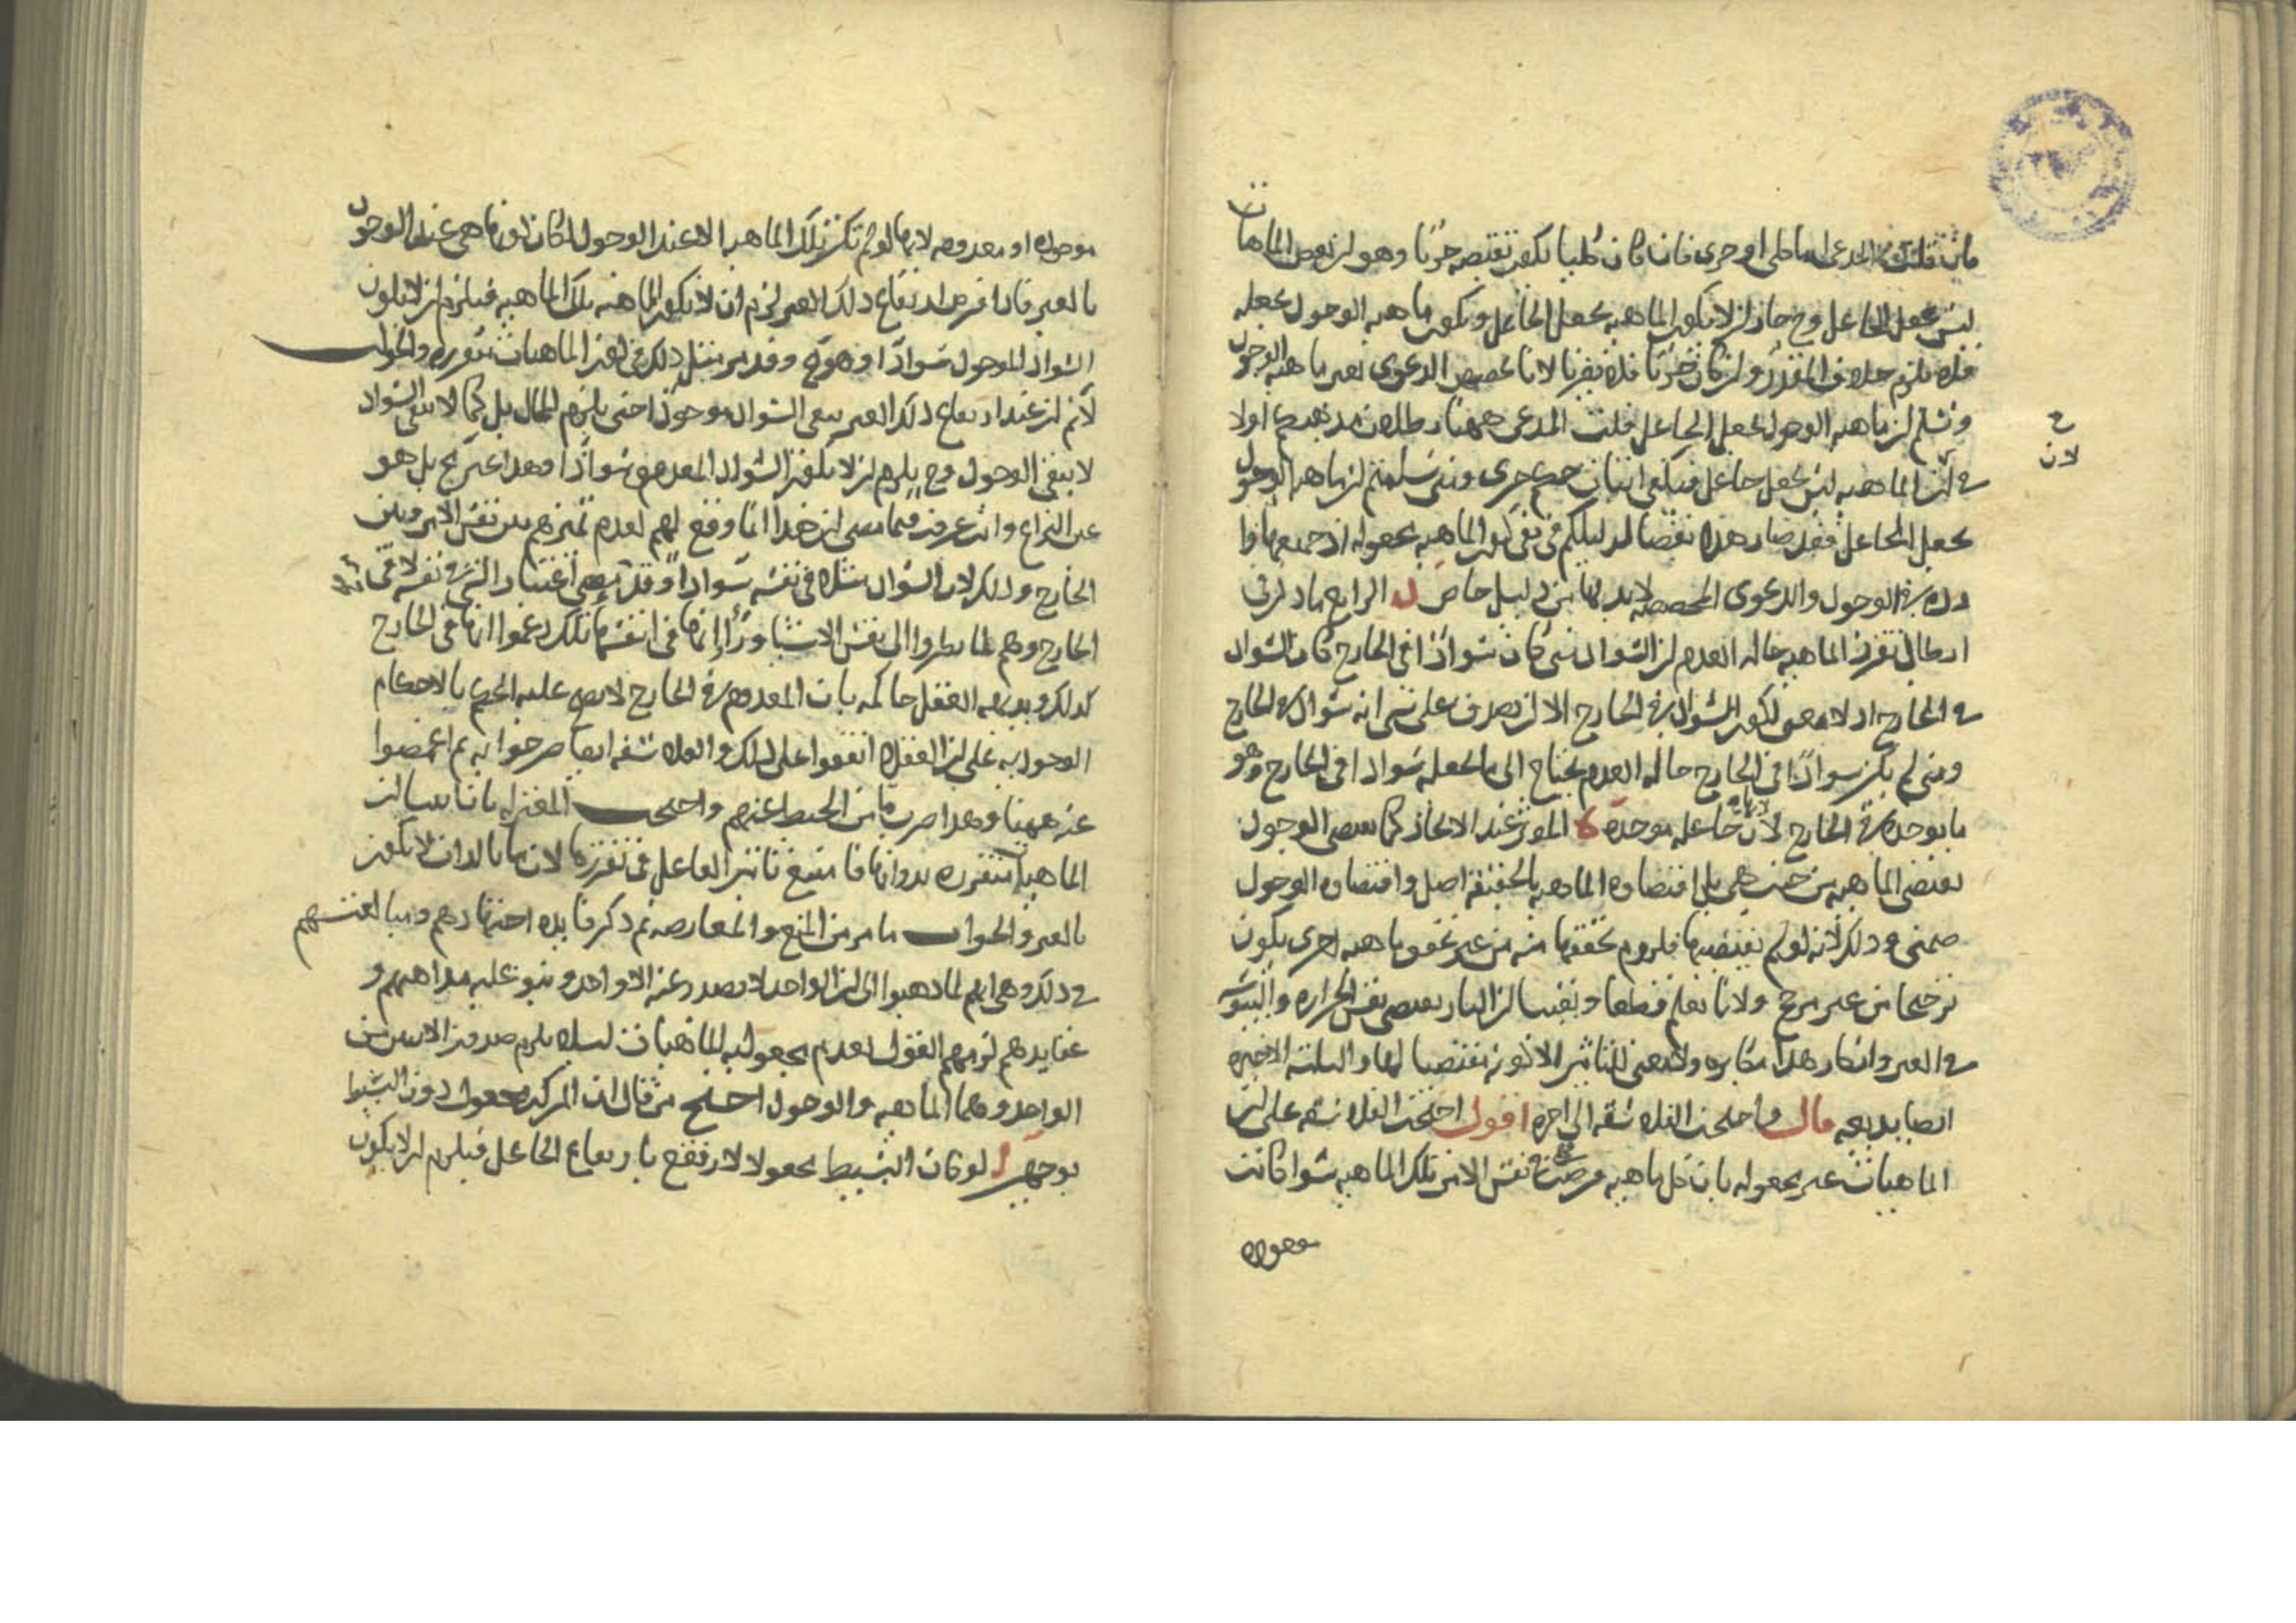 فان قلت المدعى اما كلى او جزى فان كان كليا يكفى نقيضه جزئيا وهو ان بعض الماهيات
ليس بجعل الجاعل وح جاز ان لا يكون الماهيه بجعل الجاعل ويكون ماهيه الوجود بجعله
فلا يلزم خلاف المقدر وان كان جزئيا فلا يضرنا لانا نخصص الدعوى بغير ماهيه الوجود
ونسلم ان ماهيه الوجود بجعل الجاعل قلت المدعى ههنا بطلان مذهبكم اولا
فى ان الماهيه ليس بجعل جاعل فيكفى اثبات جزى ومتى سلمتم ان ماهيه الوجود
بجعل الجاعل فقد صار هذا نقضا لدليلكم فى نفى كون الماهيه مجعوله اذ جميعها وا
رده فى الوجود والدعوى المخصصه لا بد لها من دليل خاص الرابع ما دل على
ابطال تقرر الماهيه حاله العدم ان السواد متى كان سوادا فى الخارج كان السواد
فى الخارج اذ لا معنى لكون السواد فى الخارج الا ان يصدق على شى انه سواد فى الخارج
ومتى لم يكن سوادا فى الخارج حاله العدم يحتاج الى ما يجعله سوادا فى الخارج وهو
ما يوجده فى الخارج لان جاعله موجده المؤثر عند الايجاد كما يعطى الوجود
يقتضى الماهيه من حيث هى بل اقتضاوه الماهيه بالحقيقه اصل واقتضاوه الوجود
ضمنى وذلك لانه لو لم يقتضيها فلزوم تحققها منه من غير تحقق ماهيه اخرى يكون
ترجيحا من غير مرجح ولانا نعلم قطعا ويقينا ان النار يعطى نفس الحراره واليبوسه
فى الغير وانكار هذا مكابره ولا معنى للتاثير الا كونه مقتضيا لها والثلثه الاخيره
ايضا بديعه قال واحتجت الفلاسفه الى اخره اقول احتجت الفلاسفه على ان
الماهيات غير مجعوله بان كل ماهيه فرضت فى نفس الامر تلك الماهيه سوا كانت
موجوده
ح
لان
موجوده او معدومه لانها لو لم تكن تلك الماهيه الا عند الوجود لكان كونها هى عند الوجود
بالغير فاذا فرض ارتفاع ذلك الغير لزم ان لا يكون الماهيه تلك الماهيه فيلزم ان لا يكون
السواد الموجود سوادا وهو مح وقد مر مثل ذلك فى كون الماهيات متقرره والجواب
لا نم ان عند ارتفاع ذلك الغير يبقى السواد موجودا حتى يلزم المحال بل كما لا يبقى السواد
لا يبقى الوجود وح يلزم ان لا يكون السواد المعدوم سوادا وهذا غير مح بل هو
عين النزاع وانت عرفت فيما مضى ان هذا انما وقع لهم لعدم تميزهم بين نفس الامر وبين
الخارج وذلك لان السواد مثلا فى نفسه سوادا وقد مضى اعتبار الشى فى نفسه لا فى
الخارج وهم لما نظروا الى نفس الاشيا وراوا انها فى انفسها تلك زعموا انها فى الخارج
كذلك وبديهه العقل حاكمه بان المعدوم فى الخارج لا يصح عليه الحكم بالاحكام
الوجوديه على ان العقلا اتفقوا على ذلك والفلاسفه ايضا صرحوا به ثم اغمضوا
عنه ههنا وهذا ضرب ما من الخبط عندهم واحتجت المعتزله بانا بينا ان
الماهيات متقرره بذواتها فامتنع تاثير الفاعل فى تقررها لان ما بالذات لا يكون
بالغير والجواب ما مر من المنع والمعارضه ثم ذكر فايده اجتهادهم ومبالغتهم
فى ذلك وهى انهم لما ذهبوا الى ان الواحد لا يصدر عنه الا واحد وبنوا عليه مذاهبهم و
عقايدهم لزمهم القول بعدم مجعوليه الماهيات ليلا يلزم صدور الاثنين من
الواحد وهما الماهيه والوجود احتج من قال ان المركب مجعول دون البسيط
بوجهين لو كان البسيط مجعولا لارتفع بارتفاع الجاعل فيلزم ان لا يكون